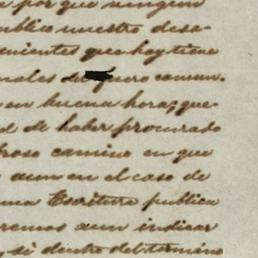 a por que ningun
publico nuestro desa-
enientes que hay tiene
nales del fuero comun.
en buena hora, que-
d de haber procurado
broso camino en que
aun en el caso de
una Escritura publica
remos aun indicar
y si dentro del termino